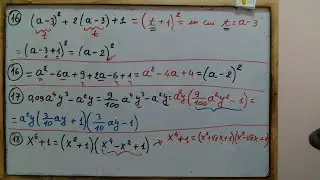 16) (a-3)² + 2(a-3)+1 = (t+1)² = in cui t=a-3
t t
= (a-3+1)² = (a-2)²
16) = a²-6a+9+2a-6+1 = a²-4a+4 = (a-2)²
17) 0,09a⁴y³-a²y = 9/100 a⁴y³-a²y = a²y(9/100 a²y²-1) =
= a²y(3/10 ay+1)(3/10 ay-1)
18) x⁶+1 = (x²+1)(x⁴-x²+1) x⁴+1 =